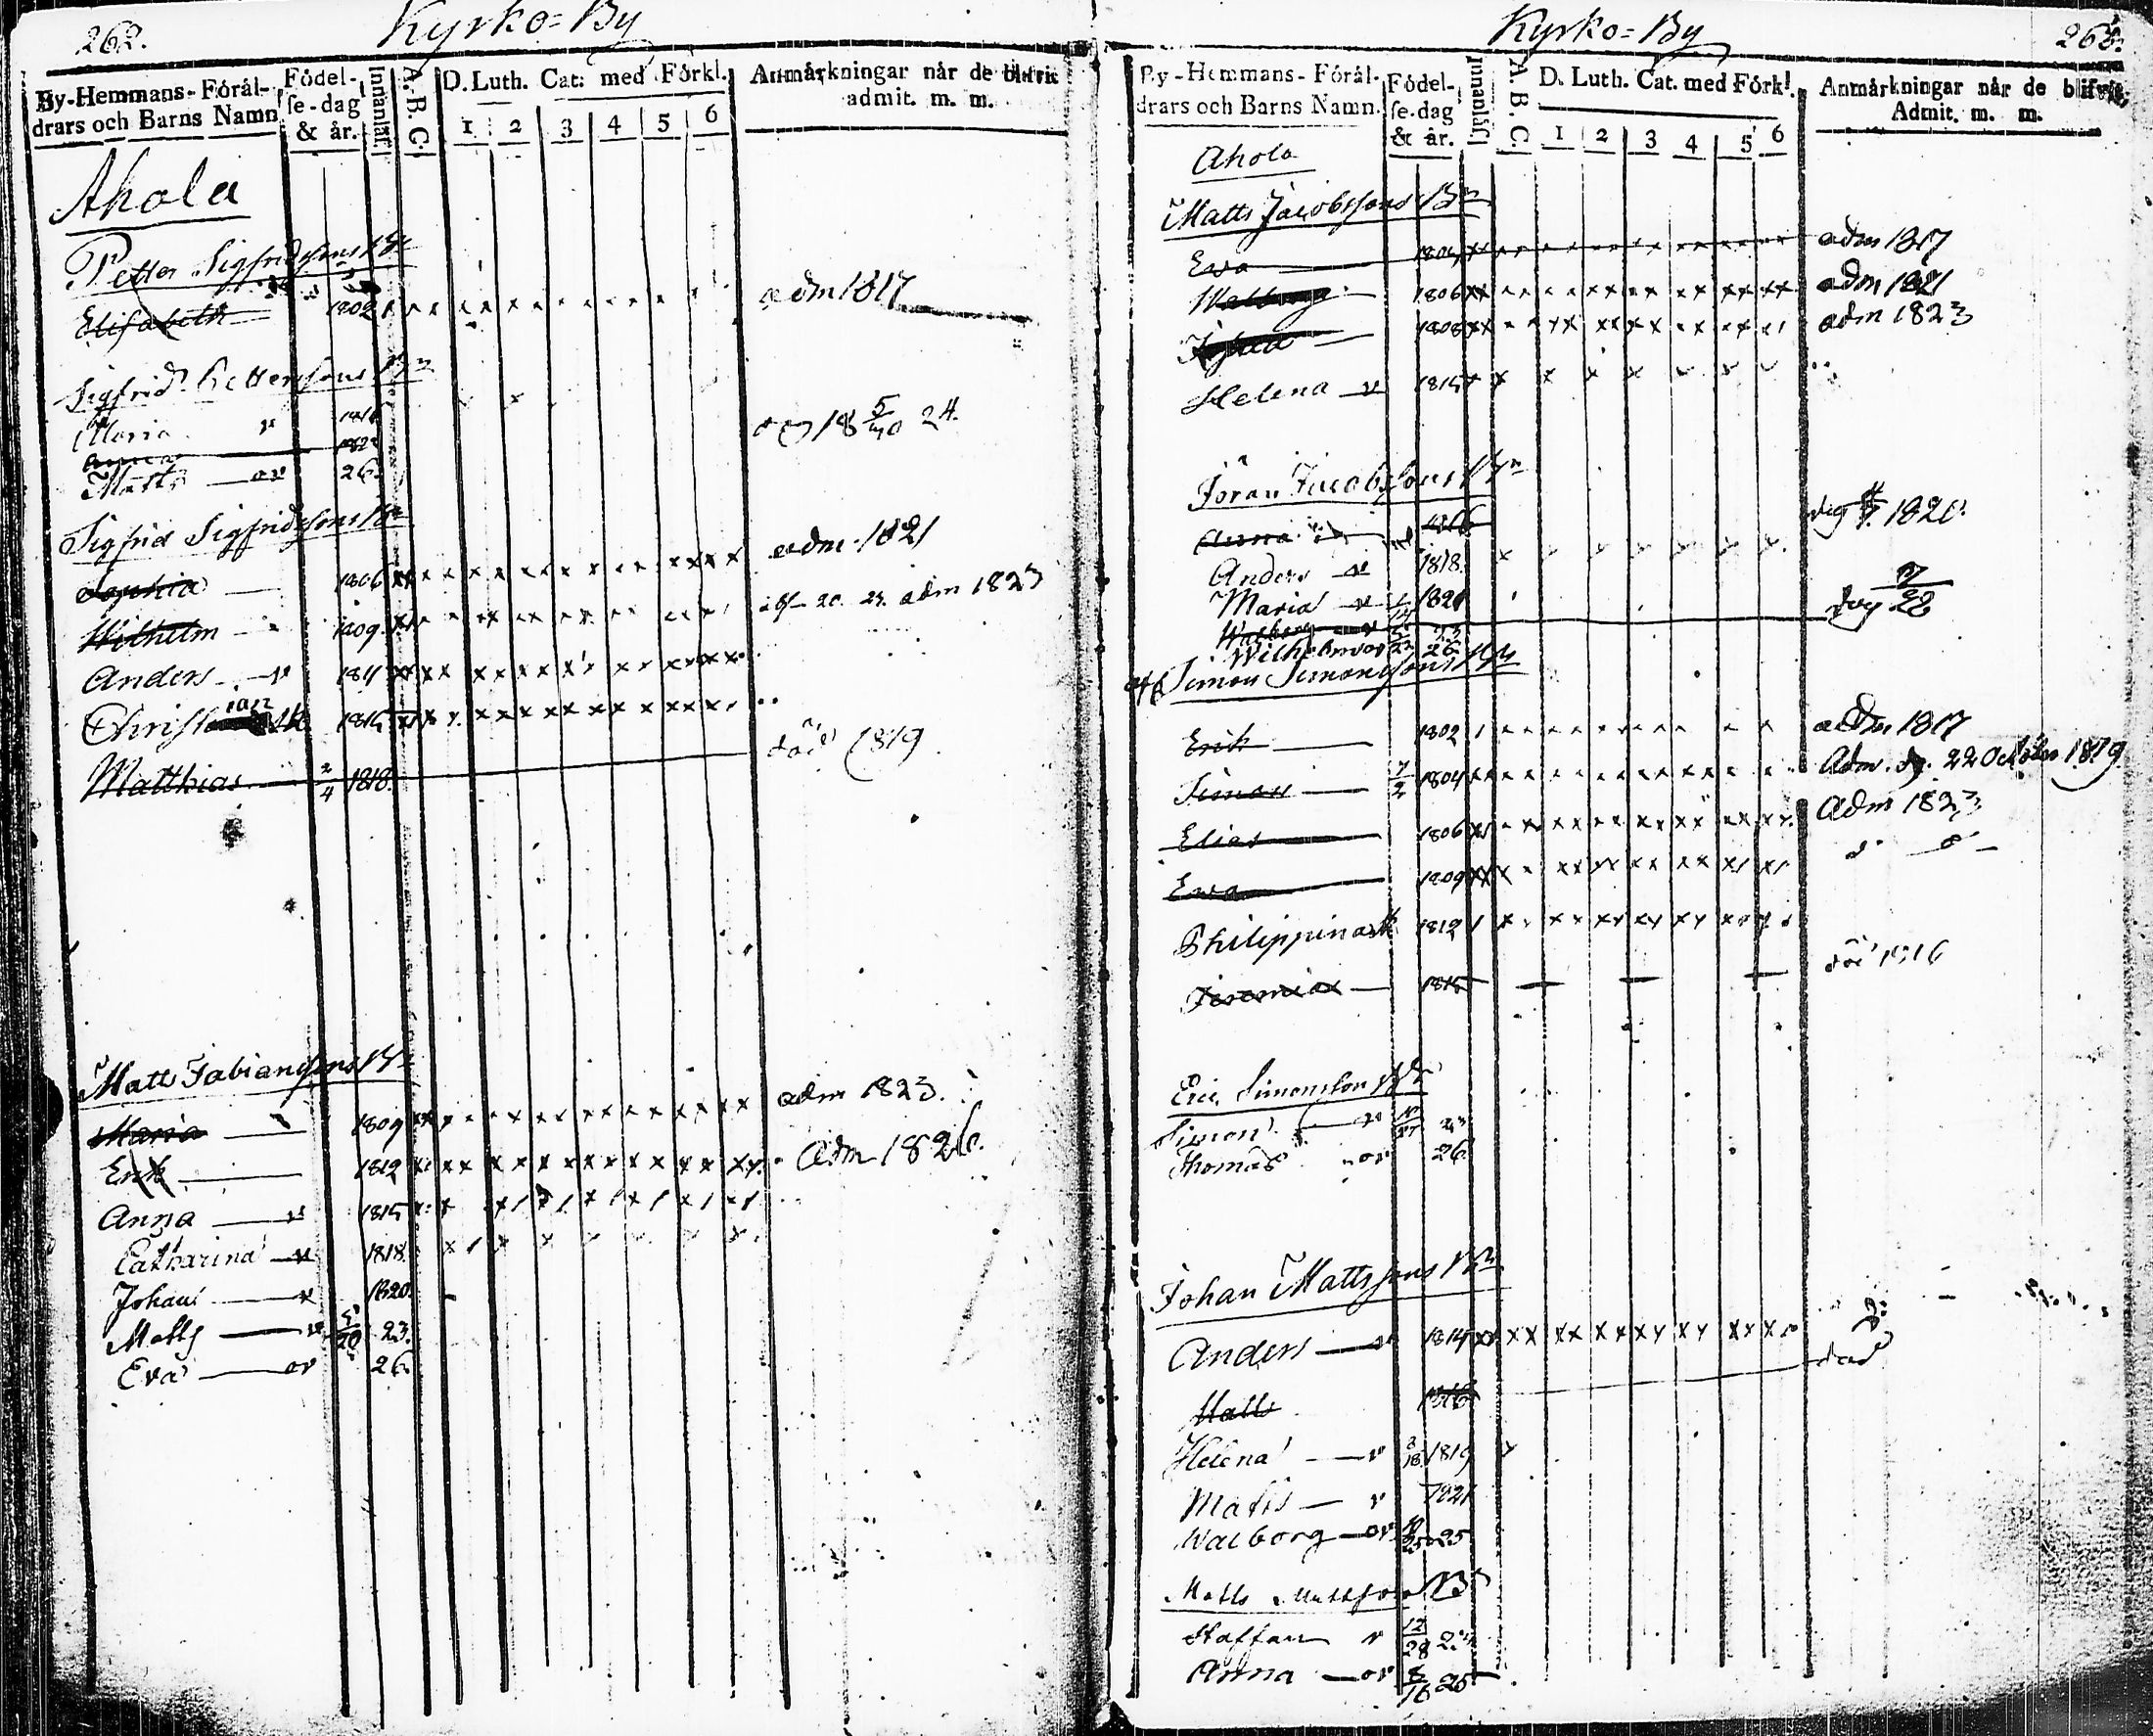 262.
Kyrko=By
By-Hemmans-Fôrâl-
drars och Barns Namn
Fôdel-
se-dag
& år.
Innanläs.
A. B. C.
D. Luth. Cat: med Fôrkl.
1 2 3 4 5 6
Anmårkningar når de blifvit
admit. m. m.
Ahola
Petter Sigfridssons Bn
Elisabeth 1802 adm 1817
Sigfrid Pettersons Bn
Maria v
Anna
Matts or 26.
Sigfrid Sigfridssons Bn
Sophia 1806 adm 1821
Wilhelm 1809. adm 1823
Anders v 1811
Christian 1815
Matthias 2/4 1818. död 1819
Matts Fabianssons Bn
Maria 1809 adm 1823.
Erik 1812 adm 1826.
Anna v 1815
Catharina v 1818.
Johan v 1820.
Matts v 5/20 23.
Eva or 26.
Kyrko=By
263.
By-Hemmans-Fôrâl-
drars och Barns Namn.
Fôdel-
se-dag
& år.
Innanläs.
A. B. C.
D. Luth. Cat. med Fôrkl.
1 2 3 4 5 6
Anmårkningar når de blifvit
Admit. m. m.
Ahola
Matts Jacobssons Bn
Ewa 1804 adm 1817
Walborg 1806 adm 1821
1808 adm 1823
Helena v 1815
Jöran Jacobssons Bn
Anna 1816 1820.
Anders v 1818.
Maria v 1821
Walborg 23
Wilhelm or 26
Simon Simonssons Bn
Erik 1802 adm 1817
Simon 7/2 1804 Adm. d. 22 October 1819
Elias 1806 Adm 1823
Ewa 1809
Philippina 1812
Jeremias 1815 död 1816
Eric Simonsson Bn
Simon v 23
Thomas or 26
Johan Mattssons Bn
Anders v 1814
Matts 1816 död
Helena v 3/18 1819
Matts v 1821
Walborg or 25
Matts Mattsson Bn
Staffan v 12/28
Anna or 8/16 25